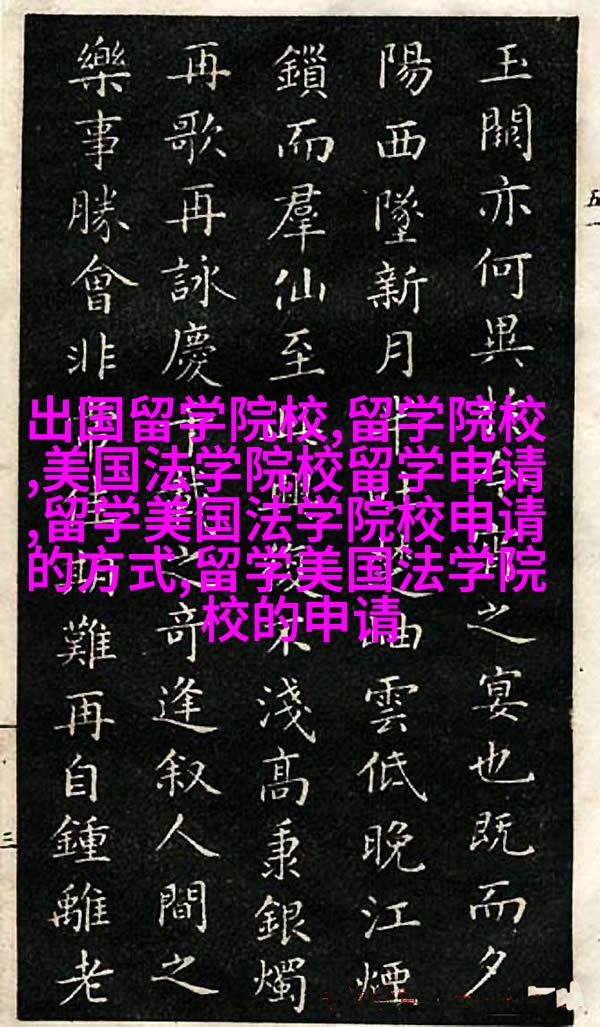 玉闕亦何異之宴也既而夕
陽西墜新月岫雲低晚江煙
鎖而羣仙至不淺高秉銀燭
再歌再詠慶千載之奇逢叙人間之
樂事勝會非佳難再自鍾離老
出国留学院校,留学院校
,美国法学院校留学申请
,留学美国法学院校申请
的方式,留学美国法学院
校的申请
五
三